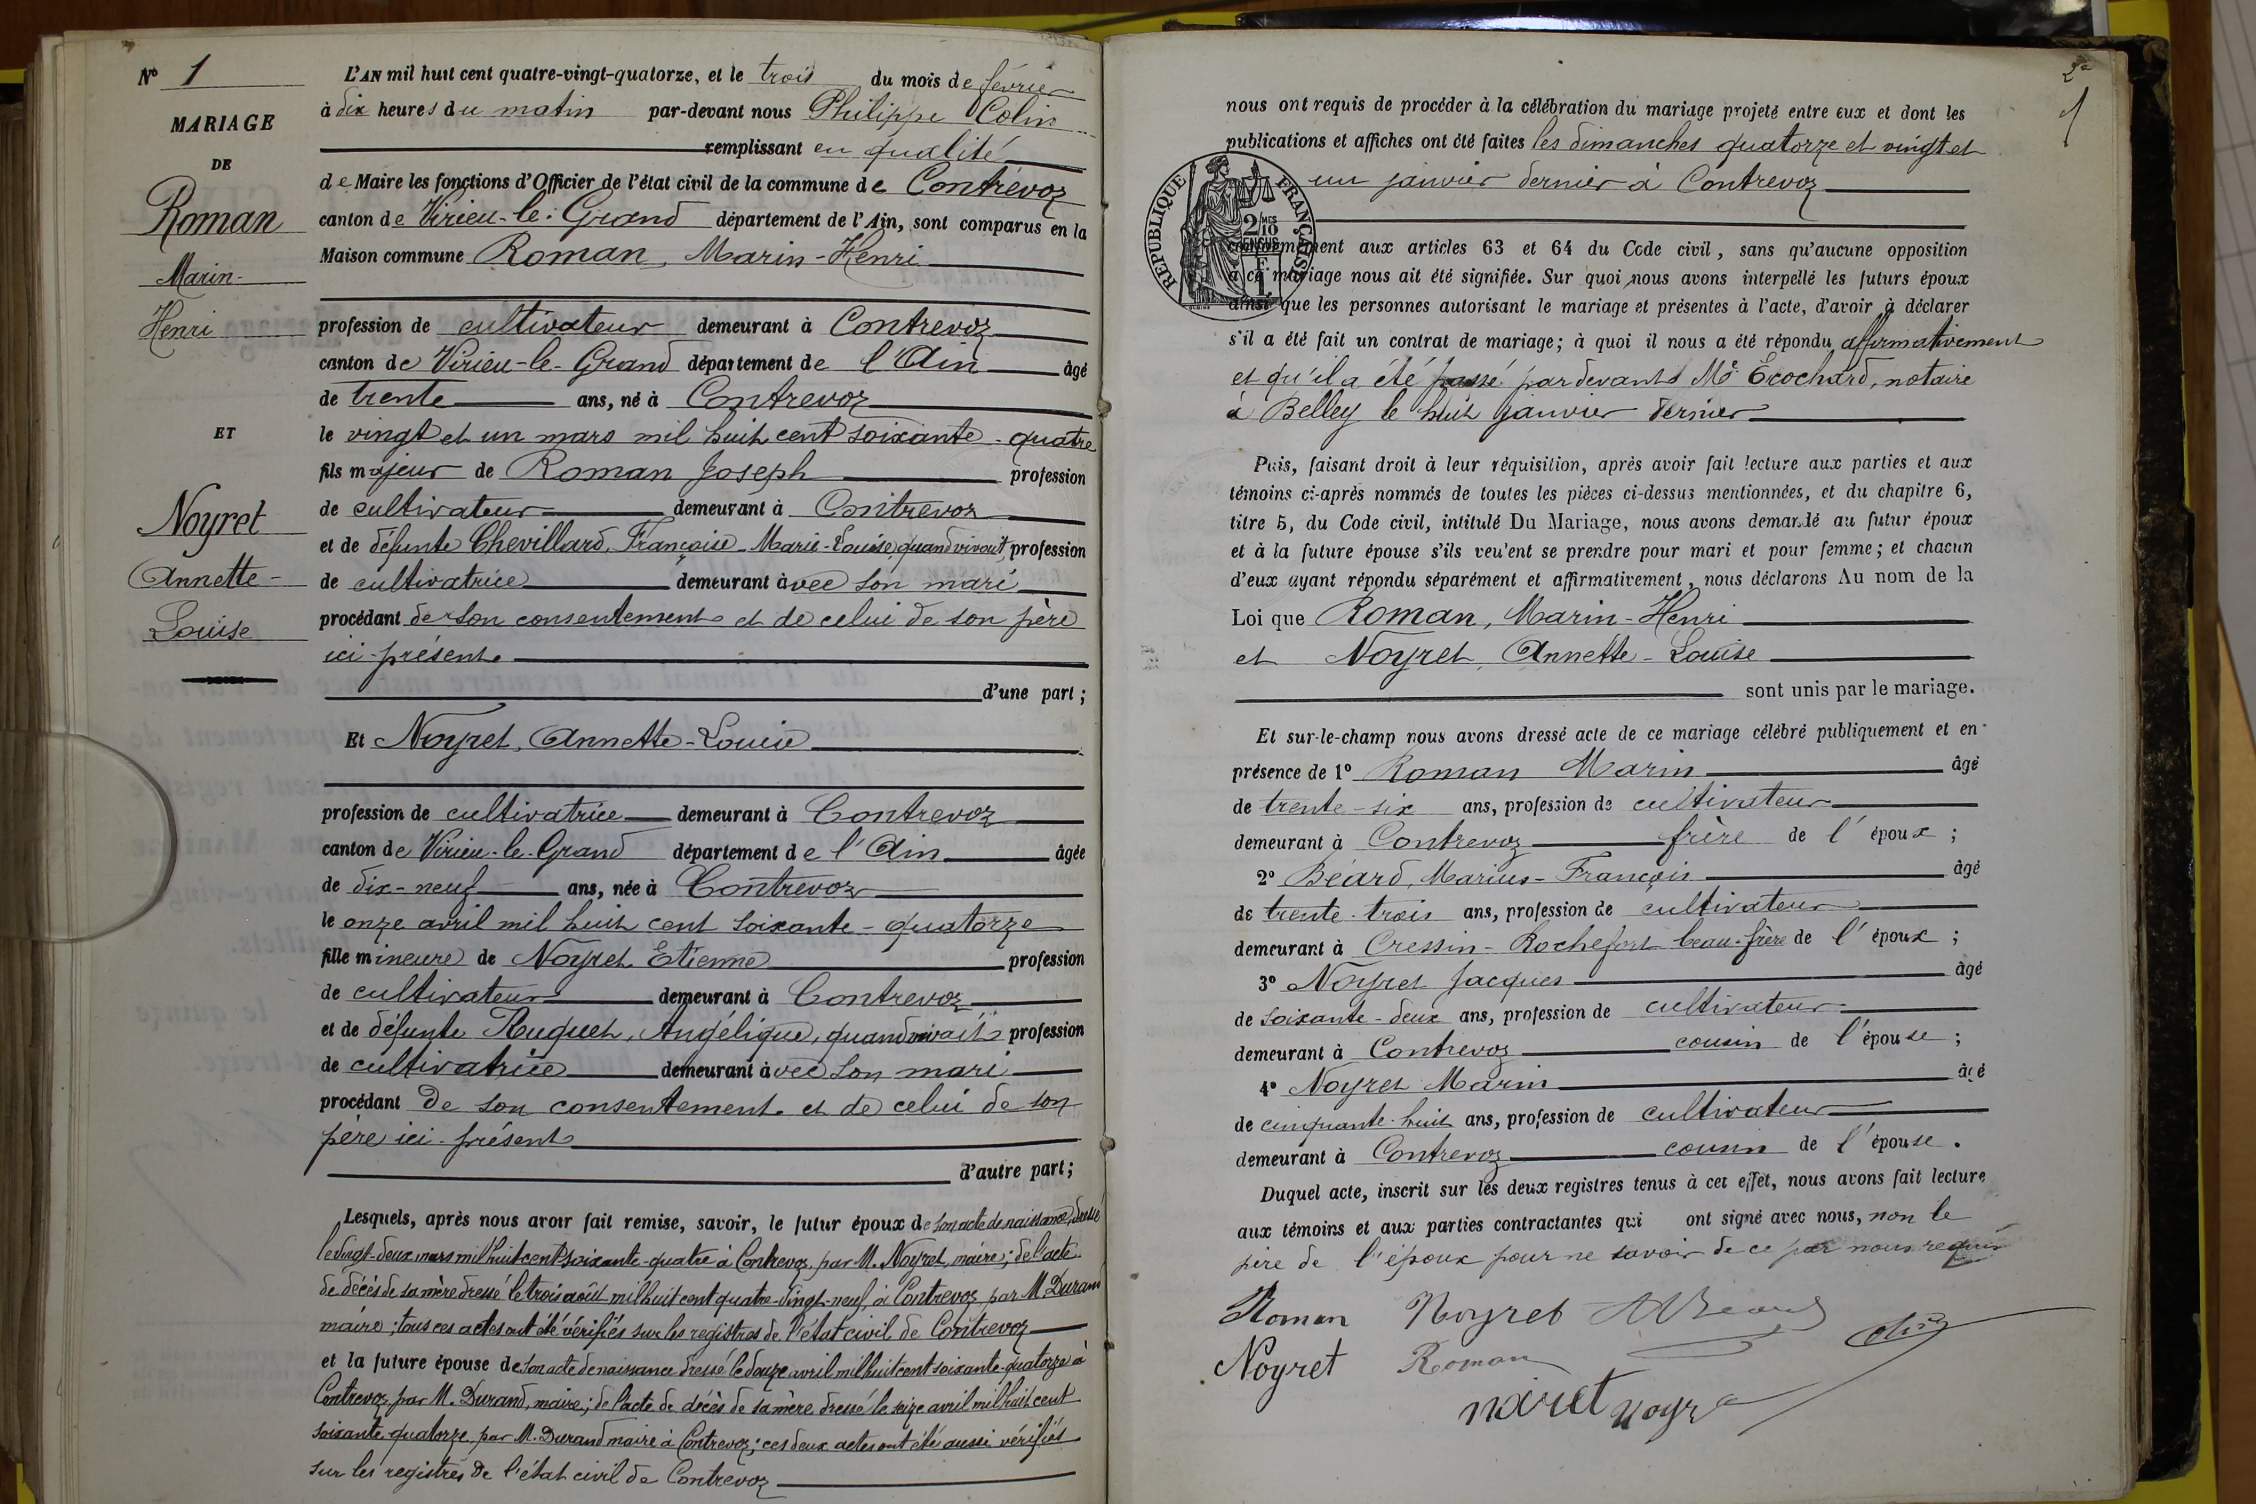 N° 1
MARIAGE
DE
Roman
Marin-
Henri
ET
Noyret
Annette-
Louise
L'AN mil huit cent quatre-vingt-quatorze, et le trois du mois de février
à dix heures du matin par-devant nous Philippe Colin
remplissant en qualité
de Maire les fonctions d'Officier de l'état civil de la commune de Contrevoz
canton de Virieu-le-Grand département de l'Ain, sont comparus en la
Maison commune Roman, Marin-Henri
profession de cultivateur demeurant à Contrevoz
canton de Virieu-le-Grand département de l'Ain âgé
de trente ans, né à Contrevoz
le vingt et un mars mil huit cent soixante-quatre
fils majeur de Roman Joseph profession
de cultivateur demeurant à Contrevoz
et de défunte Chevillard, Françoise-Marie-Louise, quand vivait, profession
de cultivatrice demeurant avec son mari
procédant de son consentement et de celui de son père
ici présent
d'une part ;
Et Noyret, Annette-Louise
profession de cultivatrice demeurant à Contrevoz
canton de Virieu-le-Grand département de l'Ain âgée
de dix-neuf ans, née à Contrevoz
le onze avril mil huit cent soixante-quatorze
fille mineure de Noyret Etienne profession
de cultivateur demeurant à Contrevoz
et de défunte Ruguet, Angélique, quand vivait profession
de cultivatrice demeurant avec son mari
procédant de son consentement et de celui de son
père ici présent
d'autre part ;
Lesquels, après nous avoir fait remise, savoir, le futur époux de son acte de naissance, dressé
le vingt-deux mars mil huit cent soixante-quatre à Contrevoz par M. Noyret, maire ; de l'acte
de décès de sa mère dressé le trois août mil huit cent quatre-vingt-neuf, à Contrevoz par M. Durand
maire ; tous ces actes ont été vérifiés sur les registres de l'état civil de Contrevoz
et la future épouse de son acte de naissance dressé le douze avril mil huit cent soixante-quatorze à
Contrevoz par M. Durand, maire ; de l'acte de décès de sa mère dressé le seize avril mil huit cent
soixante quatorze par M. Durand maire à Contrevoz ; ces deux actes ont été aussi vérifiés
sur les registres de l'état civil de Contrevoz
2e
1
nous ont requis de procéder à la célébration du mariage projeté entre eux et dont les
publications et affiches ont été faites les dimanches quatorze et vingt et
un janvier dernier à Contrevoz
RÉPUBLIQUE FRANÇAISE
2/10 MES EN SUS
conformément aux articles 63 et 64 du Code civil, sans qu'aucune opposition
à ce mariage nous ait été signifiée. Sur quoi nous avons interpellé les futurs époux
ainsi que les personnes autorisant le mariage et présentes à l'acte, d'avoir à déclarer
s'il a été fait un contrat de mariage ; à quoi il nous a été répondu affirmativement
et qu'il a été passé par devant Me Ecochard, notaire
à Belley le huit janvier dernier
Puis, faisant droit à leur réquisition, après avoir fait lecture aux parties et aux
témoins ci-après nommés de toutes les pièces ci-dessus mentionnées, et du chapitre 6,
titre 5, du Code civil, intitulé Du Mariage, nous avons demandé au futur époux
et à la future épouse s'ils veulent se prendre pour mari et pour femme ; et chacun
d'eux ayant répondu séparément et affirmativement, nous déclarons Au nom de la
Loi que Roman, Marin-Henri
et Noyret, Annette-Louise
sont unis par le mariage.
Et sur-le-champ nous avons dressé acte de ce mariage célébré publiquement et en
présence de 1° Roman Marin âgé
de trente-six ans, profession de cultivateur
demeurant à Contrevoz frère de l'époux ;
2° Béard, Marius-François âgé
de trente-trois ans, profession de cultivateur
demeurant à Cressin-Rochefort beau-frère de l'époux ;
3° Noyret Jacques âgé
de soixante-deux ans, profession de cultivateur
demeurant à Contrevoz cousin de l'épouse ;
4° Noyret Marin âgé
de cinquante-huit ans, profession de cultivateur
demeurant à Contrevoz cousin de l'épouse.
Duquel acte, inscrit sur les deux registres tenus à cet effet, nous avons fait lecture
aux témoins et aux parties contractantes qui ont signé avec nous, non le
père de l'époux pour ne savoir de ce par nous requis
Roman Noyret Béard
Noyret Roman Colin